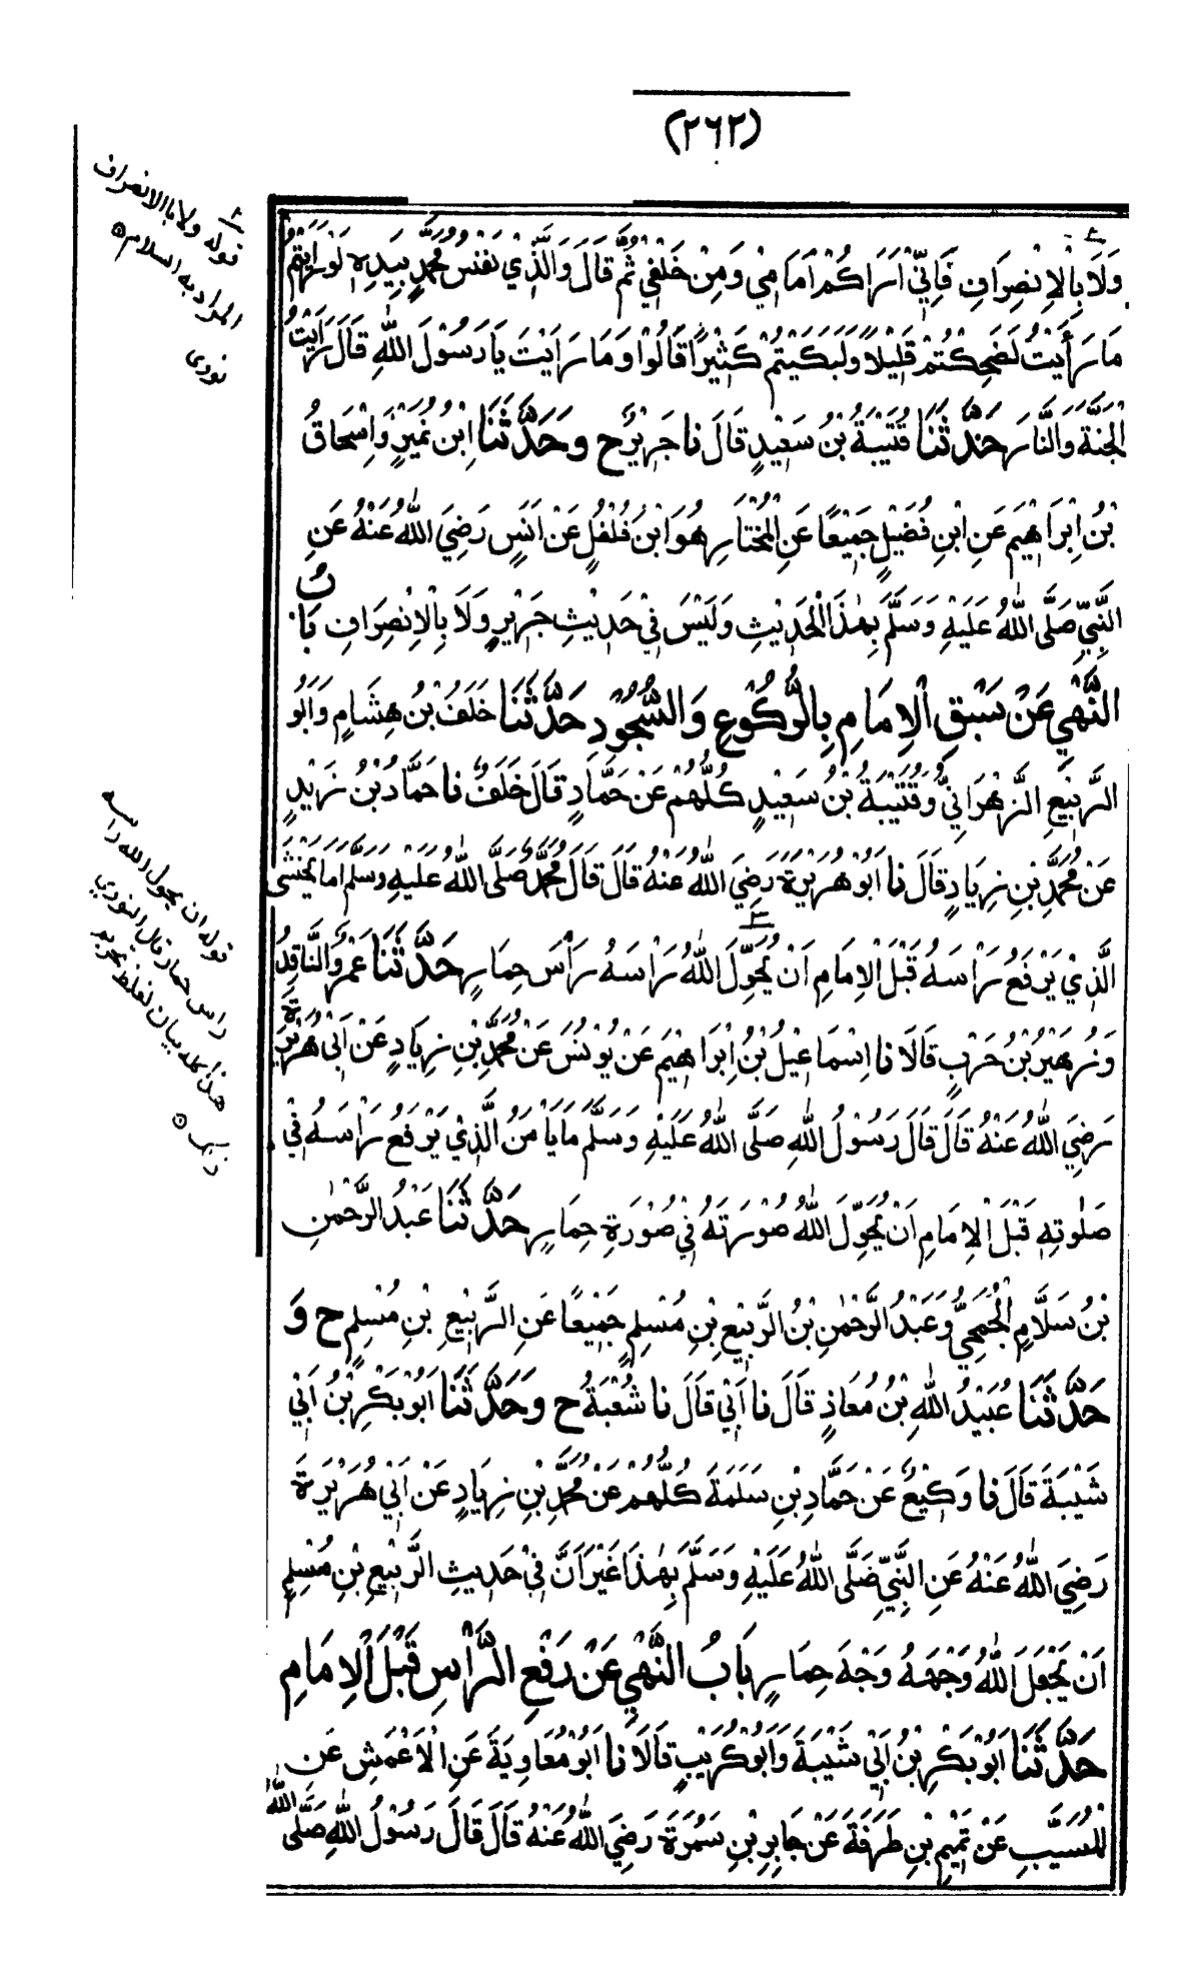 (٢٦٢)
وَلَا بِالْاِنْصِرَافِ فَاِنِّيْ اَرَاكُمْ اَمَامِيْ وَمِنْ خَلْفِيْ ثُمَّ قَالَ وَالَّذِيْ نَفْسُ مُحَمَّدٍ بِيَدِهٖ لَوْ رَاَيْتُمْ
مَا رَأَيْتُ لَضَحِكْتُمْ قَلِيْلًا وَلَبَكَيْتُمْ كَثِيْرًا قَالُوْا وَمَا رَاَيْتَ يَا رَسُوْلَ اللّٰهِ قَالَ رَاَيْتُ
الْجَنَّةَ وَالنَّارَ حَدَّثَنَا قُتَيْبَةُ بْنُ سَعِيْدٍ قَالَ نا جَرِيْرٌ ح وحَدَّثَنَا ابْنُ نُمَيْرٍ وَاِسْحَاقُ
بْنُ اِبْرَاهِيْمَ عَنِ ابْنِ فُضَيْلٍ جَمِيْعًا عَنِ الْمُخْتَارِ هُوَ ابْنُ فُلْفُلٍ عَنْ اَنَسٍ رَضِيَ اللّٰهُ عَنْهُ عَنِ
النَّبِيِّ صَلَّى اللّٰهُ عَلَيْهِ وَسَلَّمَ بِهٰذَا الْحَدِيْثِ وَلَيْسَ فِيْ حَدِيْثِ جَرِيْرٍ وَلَا بِالْاِنْصِرَافِ بَابُ
النَّهْيِ عَنْ سَبْقِ الْاِمَامِ بِالرُّكُوْعِ وَالسُّجُوْدِ حَدَّثَنَا خَلَفُ بْنُ هِشَامٍ وَاَبُو
الرَّبِيْعِ الزَّهْرَانِيُّ وَقُتَيْبَةُ بْنُ سَعِيْدٍ كُلُّهُمْ عَنْ حَمَّادٍ قَالَ خَلَفٌ نا حَمَّادُ بْنُ زَيْدٍ
عَنْ مُحَمَّدِ بْنِ زِيَادٍ قَالَ نا اَبُوْ هُرَيْرَةَ رَضِيَ اللّٰهُ عَنْهُ قَالَ قَالَ مُحَمَّدٌ صَلَّى اللّٰهُ عَلَيْهِ وَسَلَّمَ اَمَا يَخْشَى
الَّذِيْ يَرْفَعُ رَاْسَهُ قَبْلَ الْاِمَامِ اَنْ يُحَوِّلَ اللّٰهُ رَاْسَهُ رَأْسَ حِمَارٍ حَدَّثَنَا عَمْرٌو النَّاقِدُ
وَزُهَيْرُ بْنُ حَرْبٍ قَالَا نا اِسْمَاعِيْلُ بْنُ اِبْرَاهِيْمَ عَنْ يُوْنُسَ عَنْ مُحَمَّدِ بْنِ زِيَادٍ عَنْ اَبِيْ هُرَيْرَةَ
رَضِيَ اللّٰهُ عَنْهُ قَالَ قَالَ رَسُوْلُ اللّٰهِ صَلَّى اللّٰهُ عَلَيْهِ وَسَلَّمَ مَا يَاْمَنُ الَّذِيْ يَرْفَعُ رَاْسَهُ فِيْ
صَلٰوتِهٖ قَبْلَ الْاِمَامِ اَنْ يُحَوِّلَ اللّٰهُ صُوْرَتَهُ فِيْ صُوْرَةِ حِمَارٍ حَدَّثَنَا عَبْدُ الرَّحْمٰنِ
بْنُ سَلَّامٍ الْجُمَحِيُّ وَعَبْدُ الرَّحْمٰنِ بْنُ الرَّبِيْعِ بْنِ مُسْلِمٍ جَمِيْعًا عَنِ الرَّبِيْعِ بْنِ مُسْلِمٍ ح وَ
حَدَّثَنَا عُبَيْدُ اللّٰهِ بْنُ مُعَاذٍ قَالَ نا اَبِيْ قَالَ نا شُعْبَةُ ح وَحَدَّثَنَا اَبُوْ بَكْرِ بْنُ اَبِيْ
شَيْبَةَ قَالَ نا وَكِيْعٌ عَنْ حَمَّادِ بْنِ سَلَمَةَ كُلُّهُمْ عَنْ مُحَمَّدِ بْنِ زِيَادٍ عَنْ اَبِيْ هُرَيْرَةَ
رَضِيَ اللّٰهُ عَنْهُ عَنِ النَّبِيِّ صَلَّى اللّٰهُ عَلَيْهِ وَسَلَّمَ بِهٰذَا غَيْرَ اَنَّ فِيْ حَدِيْثِ الرَّبِيْعِ بْنِ مُسْلِمٍ
اَنْ يَجْعَلَ اللّٰهُ وَجْهَهُ وَجْهَ حِمَارٍ بَابُ النَّهْيِ عَنْ رَفْعِ الرَّأْسِ قَبْلَ الْاِمَامِ
حَدَّثَنَا اَبُوْ بَكْرِ بْنُ اَبِيْ شَيْبَةَ وَاَبُوْ كُرَيْبٍ قَالَا نا اَبُوْ مُعَاوِيَةَ عَنِ الْاَعْمَشِ عَنِ
الْمُسَيَّبِ عَنْ تَمِيْمِ بْنِ طَرَفَةَ عَنْ جَابِرِ بْنِ سَمُرَةَ رَضِيَ اللّٰهُ عَنْهُ قَالَ قَالَ رَسُوْلُ اللّٰهِ صَلَّى اللّٰهُ
قوله ولا باالانصراف
المراد به السلام ٥
نووى
قوله ان يحول الله راسه
راس حمار قال النووي
هذا كله بيان لغلظ تحريم
ذلك ٥